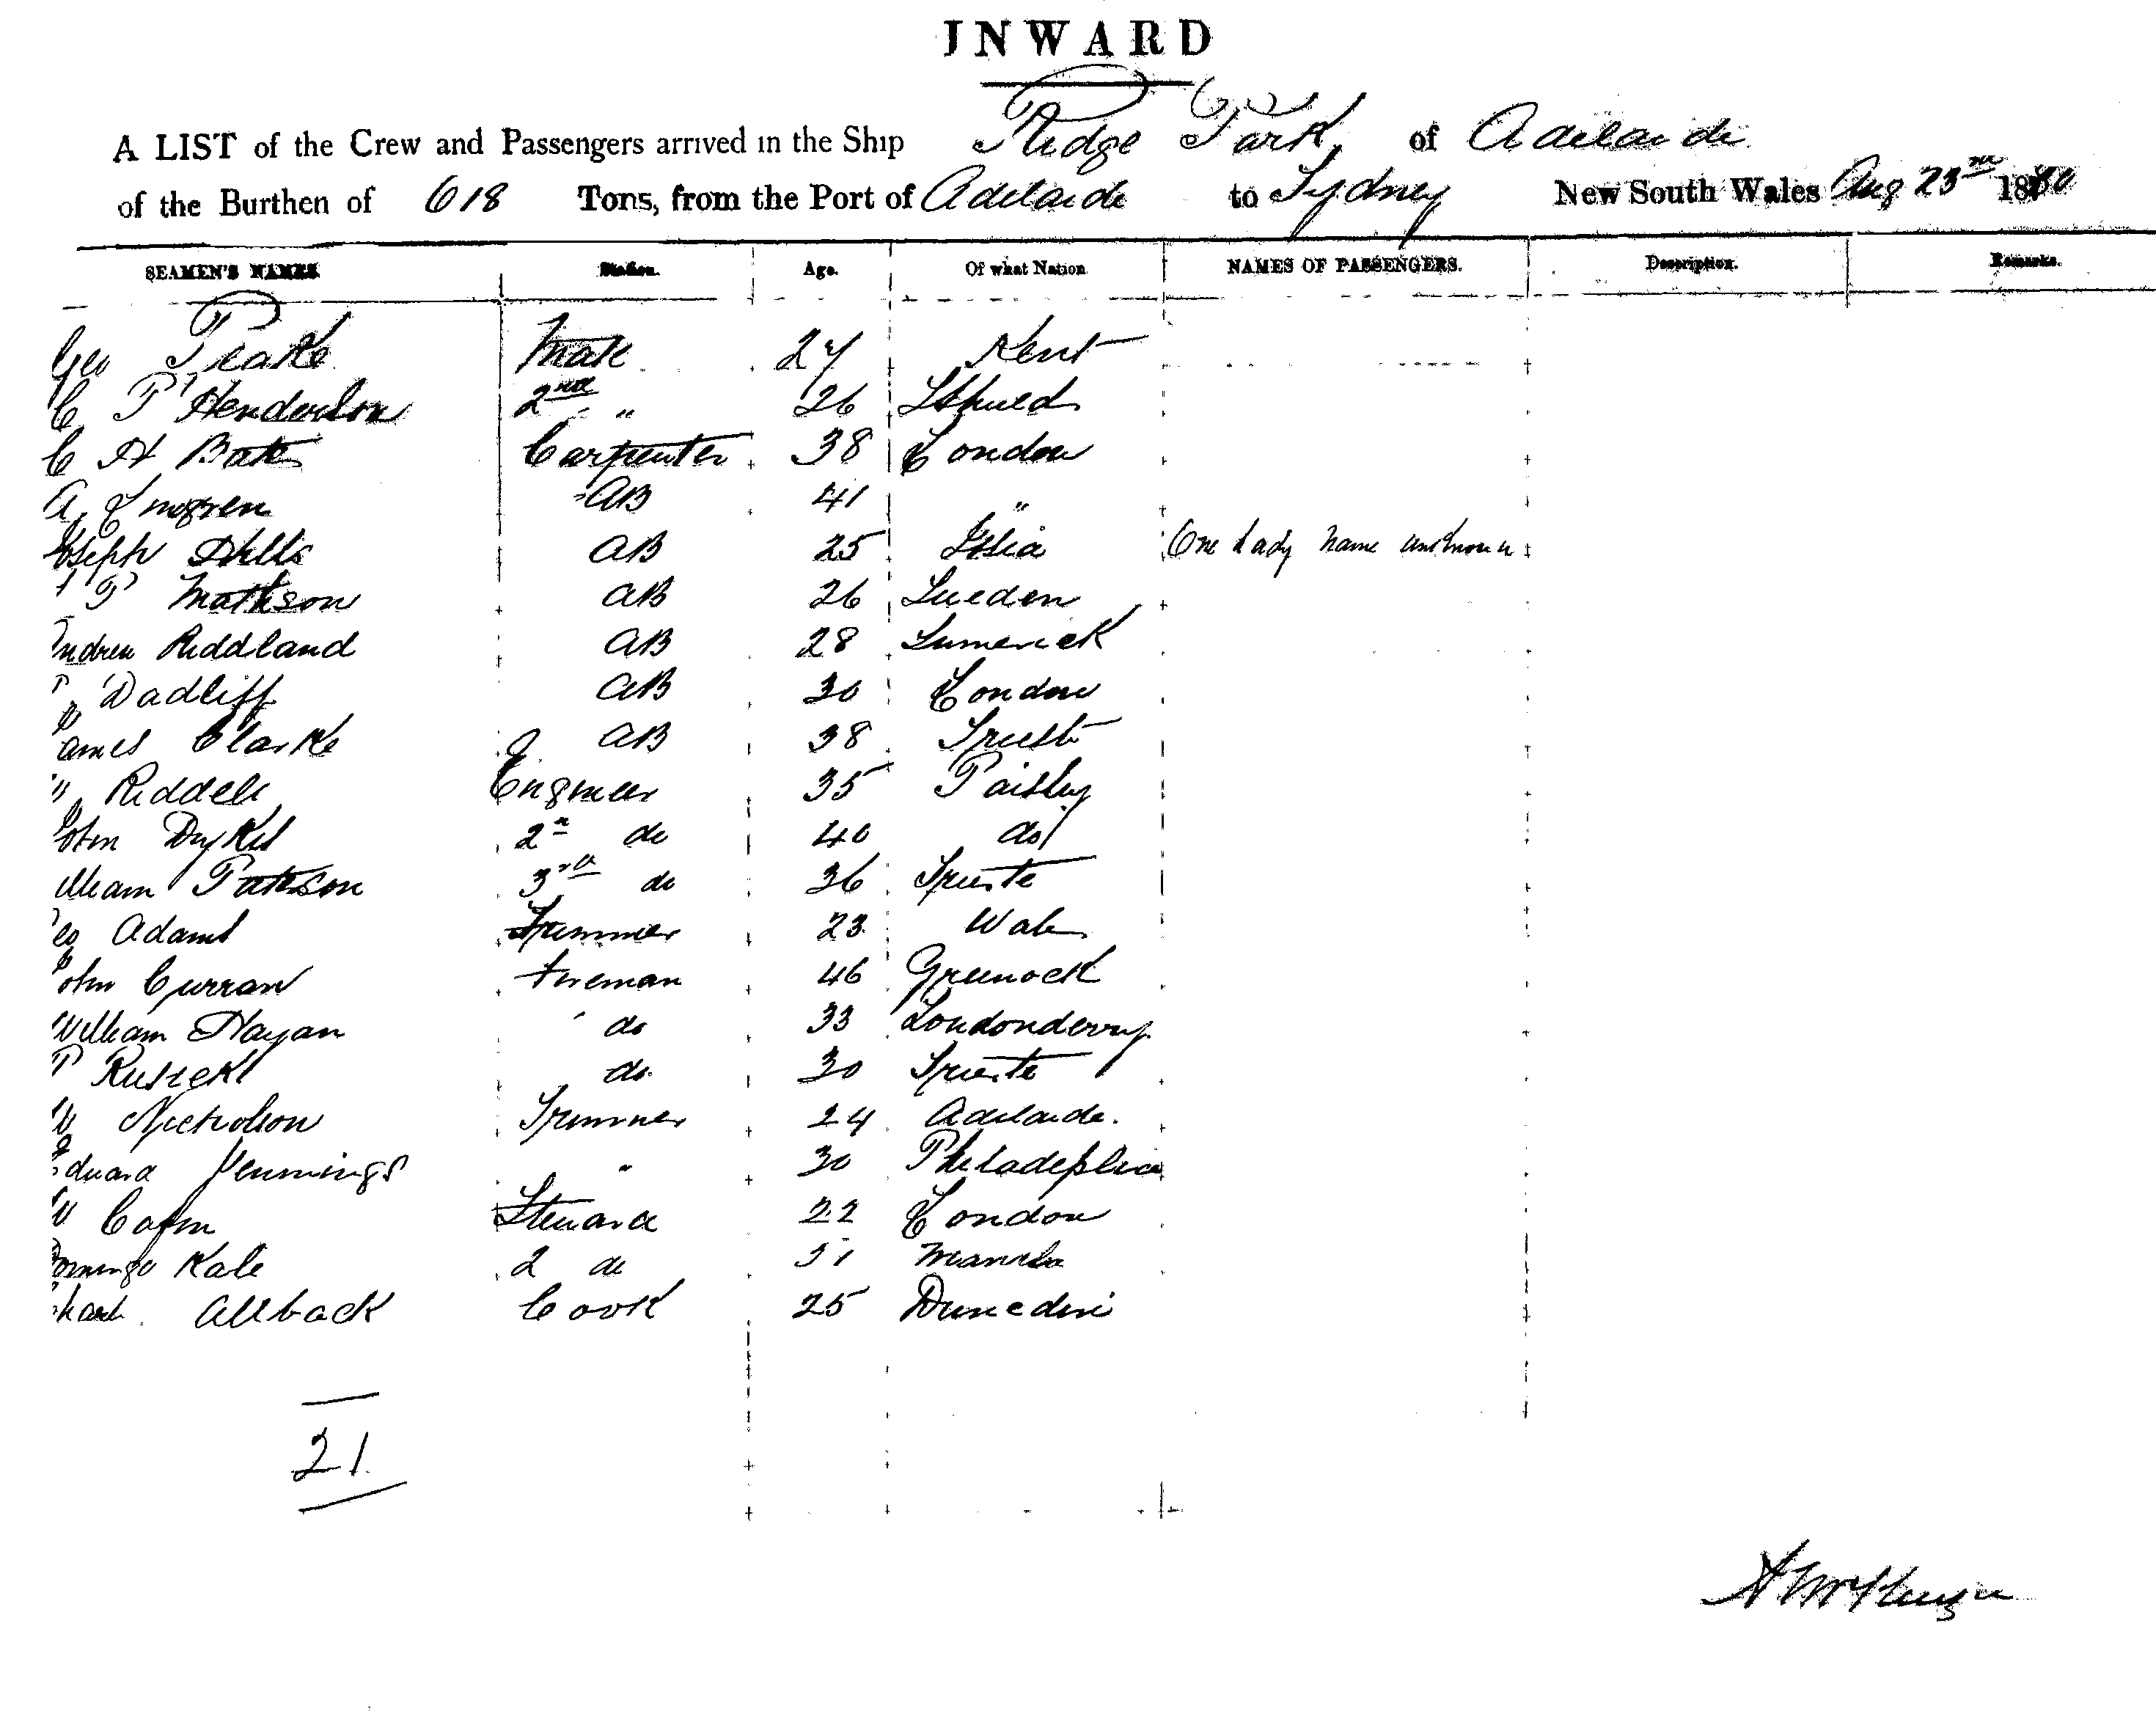 INWARD
A LIST of the Crew and Passengers arrived in the Ship Ridge Park of Adelaide
of the Burthen of 618 Tons, from the Port of Adelaide to Sydney New South Wales Aug 23rd 1880
SEAMEN'S NAMES Station. Age. Of what Nation NAMES OF PASSENGERS. Description. Remarks.
Geo Peake Mate 27 Kent
C P Henderson 2nd " 26
C H Bate Carpenter 38 London
A AB 41 "
Joseph AB 25 One Lady name unknown
P Mathson AB 26 Sueden
Andrew Riddland AB 28 Limerick
Dadliff AB 30 London
James Clarke AB 38
Riddell Engineer 35 Paisley
John Dykes 2n do 40 do
William Patteson 3rd do 36 Trieste
Geo Adams Trimmer 23 Wales
John Curran Fireman 46 Greenock
William Hayan do 33 Londonderry
P do 30 Trieste
W Nicholson Trimmer 24 Adelaide.
Eduard Jennings " 30 Philadeplia
W Steward 22 London
Domingo Kale 2 do 31 Manila
Allback Cook 25 Dunedin
21